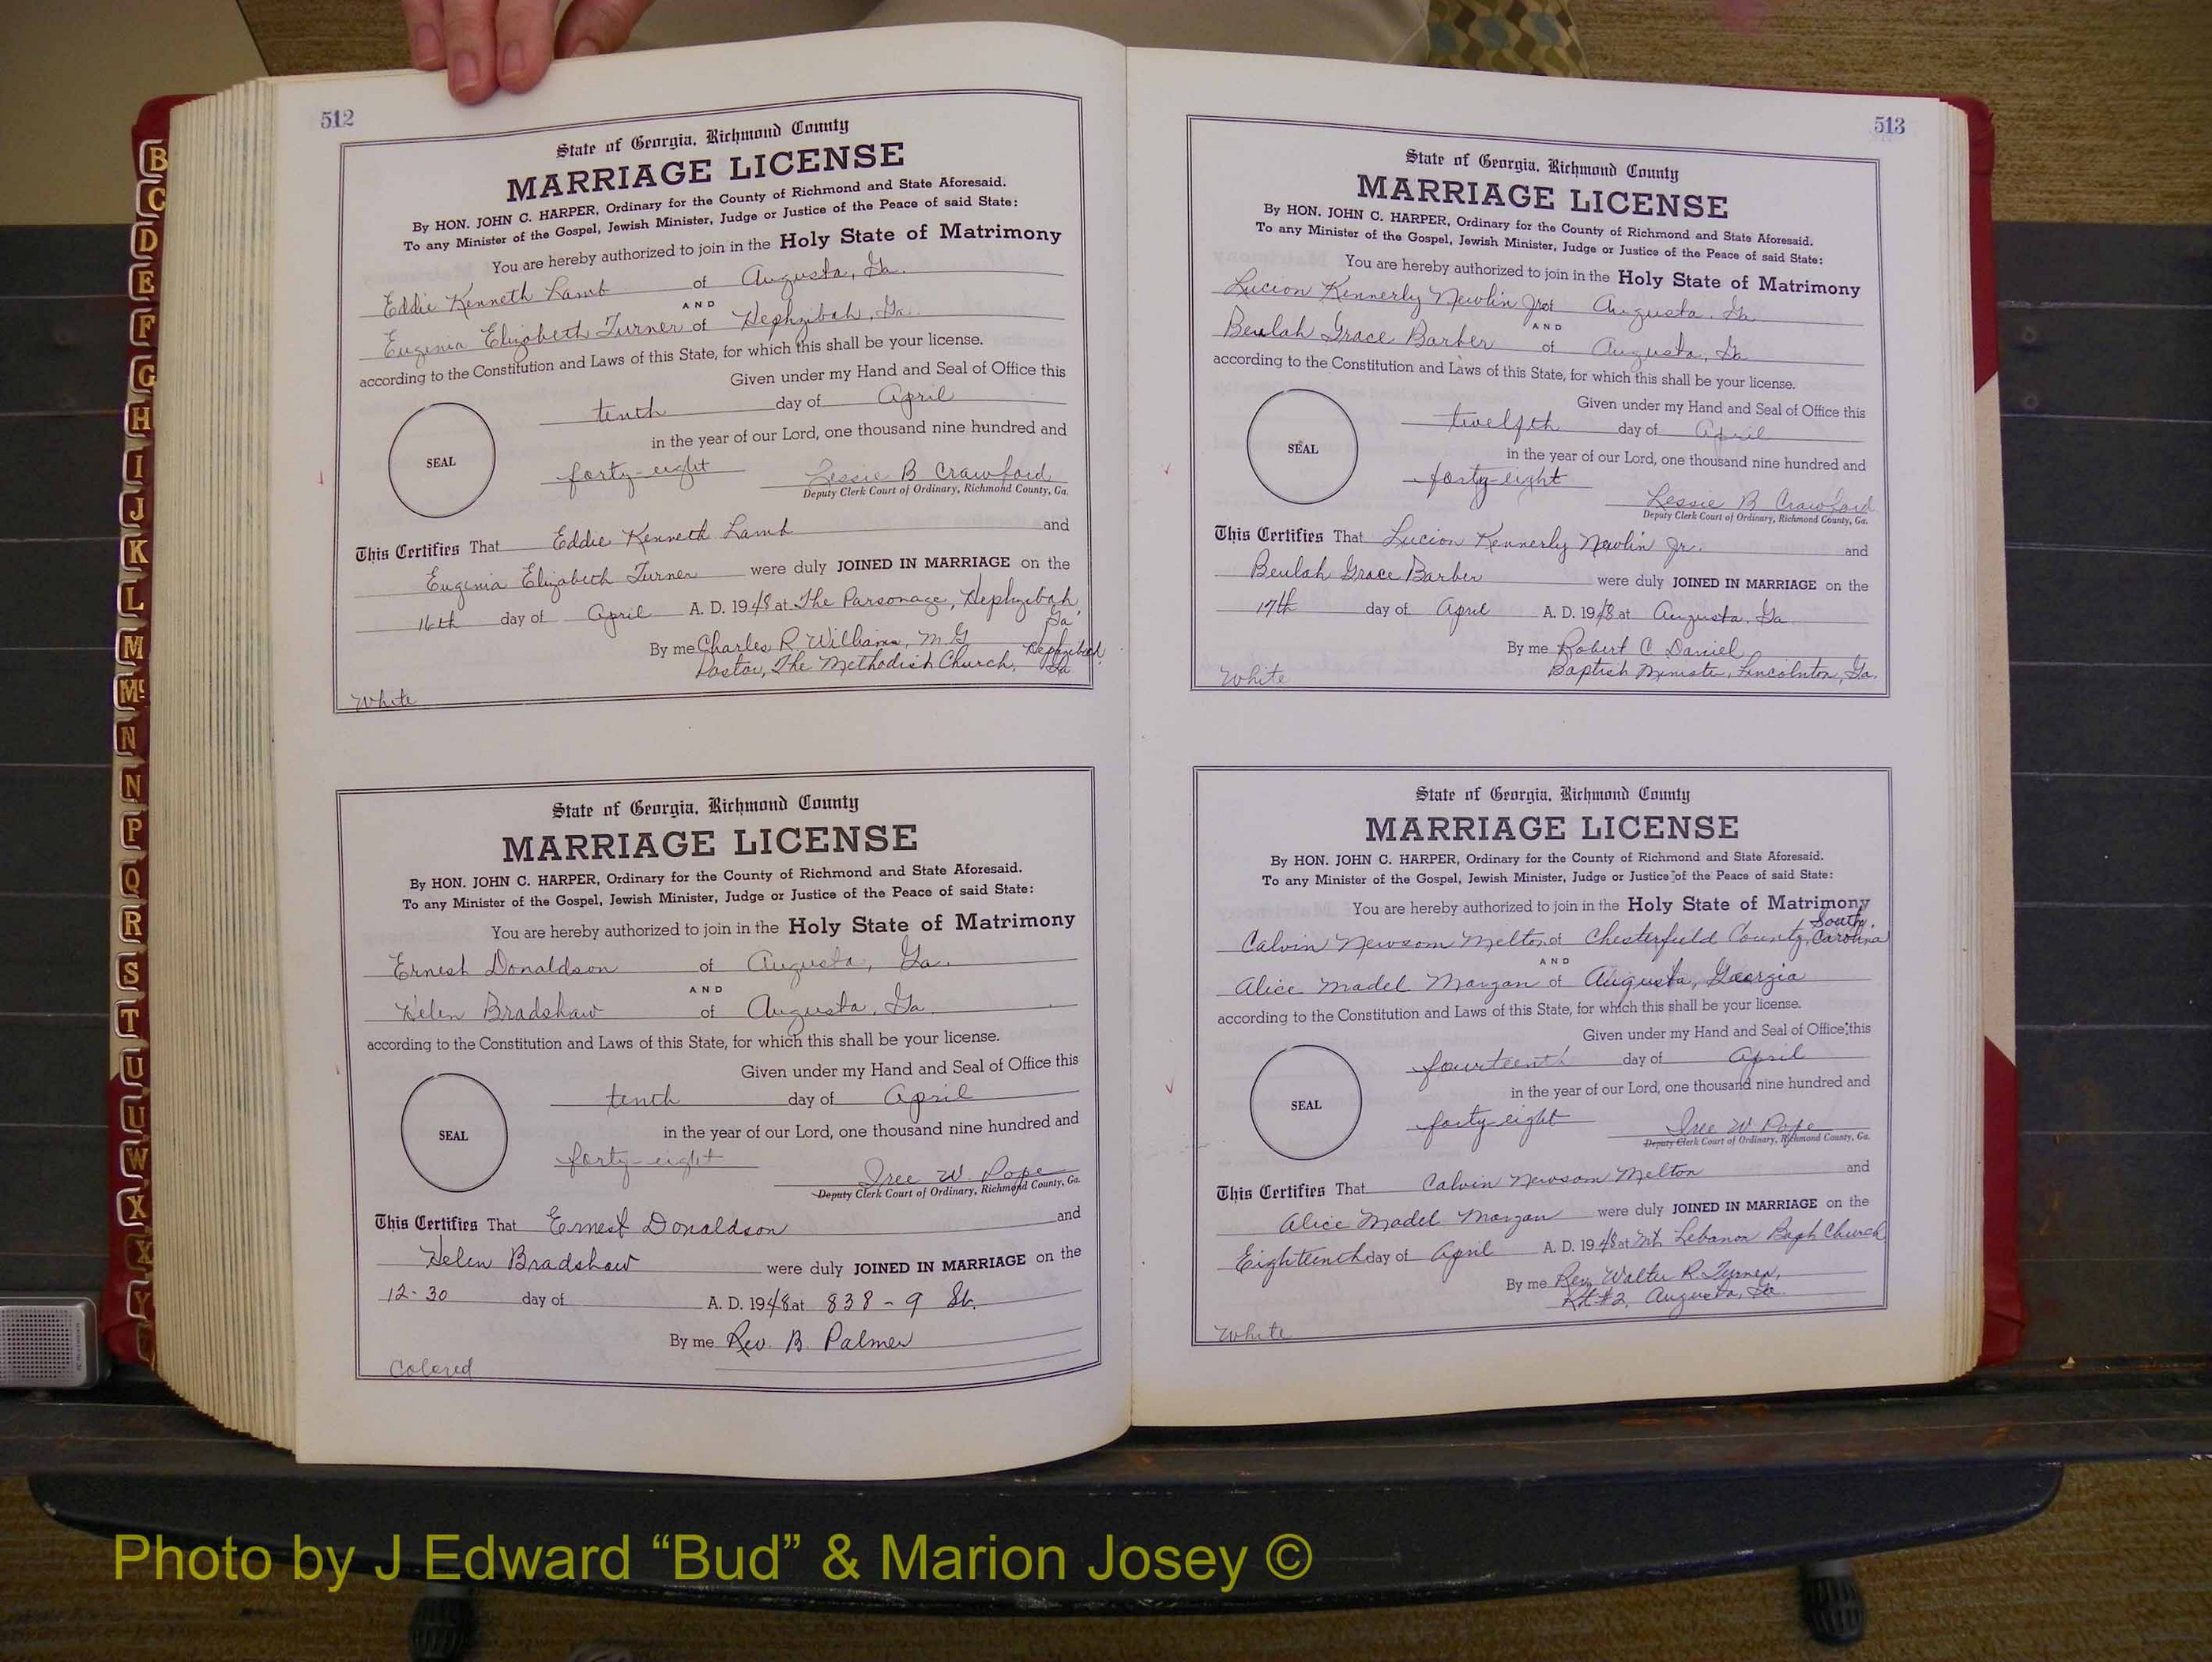 512
State of Georgia, Richmond County
MARRIAGE LICENSE
By HON. JOHN C. HARPER, Ordinary for the County of Richmond and State Aforesaid.
To any Minister of the Gospel, Jewish Minister, Judge or Justice of the Peace of said State:
You are hereby authorized to join in the Holy State of Matrimony
Eddie Kenneth Lamb of Augusta, Ga.
AND
Eugenia Elizabeth Turner of Hephzibah, Ga.
according to the Constitution and Laws of this State, for which this shall be your license.
Given under my Hand and Seal of Office this
tenth day of April
in the year of our Lord, one thousand nine hundred and
SEAL
forty-eight Lessie B Crawford
Deputy Clerk Court of Ordinary, Richmond County, Ga.
This Certifies That Eddie Kenneth Lamb and
Eugenia Elizabeth Turner were duly JOINED IN MARRIAGE on the
16th day of April A. D. 1948 at The Parsonage, Hephzibah, Ga.
By me Charles R Williams, M G
Pastor, The Methodist Church, Hephzibah Ga.
White
State of Georgia, Richmond County
MARRIAGE LICENSE
By HON. JOHN C. HARPER, Ordinary for the County of Richmond and State Aforesaid.
To any Minister of the Gospel, Jewish Minister, Judge or Justice of the Peace of said State:
You are hereby authorized to join in the Holy State of Matrimony
Ernest Donaldson of Augusta, Ga.
AND
Helen Bradshaw of Augusta, Ga.
according to the Constitution and Laws of this State, for which this shall be your license.
Given under my Hand and Seal of Office this
tenth day of April
SEAL
in the year of our Lord, one thousand nine hundred and
forty-eight Iree W. Pope
Deputy Clerk Court of Ordinary, Richmond County, Ga.
This Certifies That Ernest Donaldson and
Helen Bradshaw were duly JOINED IN MARRIAGE on the
12-30 day of A. D. 1948 at 838 - 9 St.
By me Rev. B. Palmer
Colored
513
State of Georgia, Richmond County
MARRIAGE LICENSE
By HON. JOHN C. HARPER, Ordinary for the County of Richmond and State Aforesaid.
To any Minister of the Gospel, Jewish Minister, Judge or Justice of the Peace of said State:
You are hereby authorized to join in the Holy State of Matrimony
Lucion Kennerly Newlin Jr of Augusta, Ga
AND
Beulah Grace Barber of Augusta, Ga
according to the Constitution and Laws of this State, for which this shall be your license.
Given under my Hand and Seal of Office this
twelfth day of April
SEAL
in the year of our Lord, one thousand nine hundred and
forty-eight
Lessie B Crawford
Deputy Clerk Court of Ordinary, Richmond County, Ga.
This Certifies That Lucion Kennerly Newlin Jr. and
Beulah Grace Barber were duly JOINED IN MARRIAGE on the
17th day of April A. D. 1948 at Augusta, Ga
By me Robert C Daniel
Baptist Minister, Lincolnton, Ga.
White
State of Georgia, Richmond County
MARRIAGE LICENSE
By HON. JOHN C. HARPER, Ordinary for the County of Richmond and State Aforesaid.
To any Minister of the Gospel, Jewish Minister, Judge or Justice of the Peace of said State:
You are hereby authorized to join in the Holy State of Matrimony
Calvin Newsom Melton of Chesterfield County, South Carolina
AND
Alice Madel Morgan of Augusta, Georgia
according to the Constitution and Laws of this State, for which this shall be your license.
Given under my Hand and Seal of Office this
fourteenth day of April
in the year of our Lord, one thousand nine hundred and
SEAL
forty-eight Iree W. Pope
Deputy Clerk Court of Ordinary, Richmond County, Ga.
This Certifies That Calvin Newsom Melton and
Alice Madel Morgan were duly JOINED IN MARRIAGE on the
Eighteenth day of April A. D. 1948 at Mt. Lebanon Bapt Church
By me Rev. Walter R. Turner,
Rt #2, Augusta, Ga.
White
B
C
D
E
F
G
H
I
J
K
L
M
Mc
N
N
P
Q
R
S
T
U
U
W
X
X
Y
Photo by J Edward “Bud” & Marion Josey ©